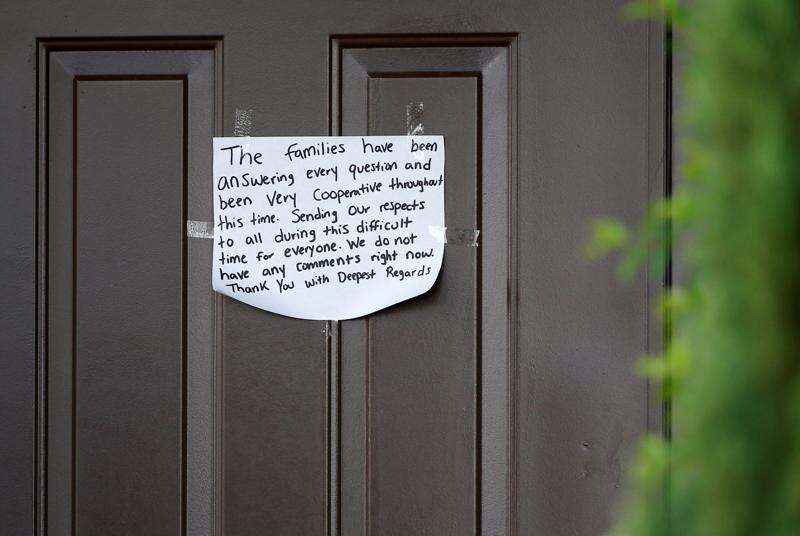 The families have been
answering every question and
been Very Cooperative throughout
this time. Sending Our respects
to all during this difficult
time for everyone. We do not
have any comments right now.
Thank You with Deepest Regards